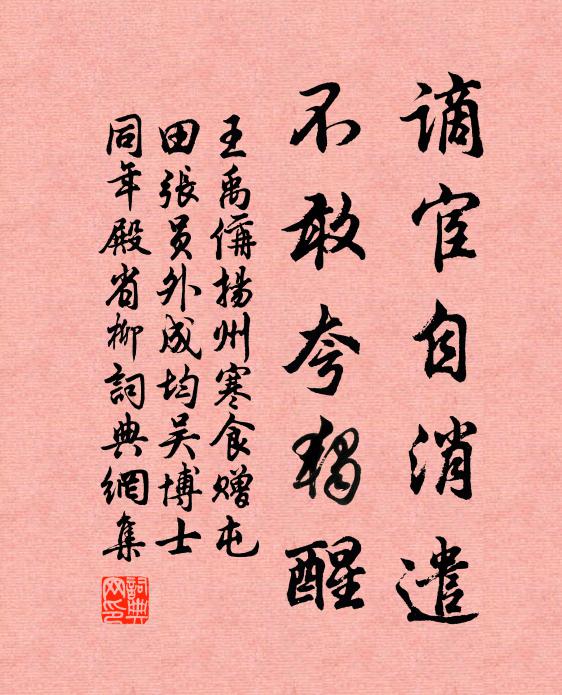 謫宦自消遣
不敢夸獨醒
王禹偁揚州寒食贈屯
田張員外成均吴博士
同年殿省柳詞典網集
詞典
网印